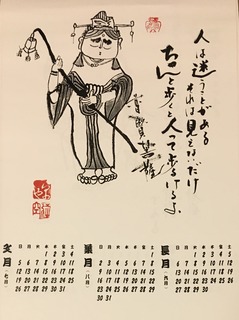 人は迷うことがある
それは見えないだけ
ちゃんと歩くと人って歩けるよ
文月
(七月)
日 月 火 水 木 金 土
1 2 3 4
5 6 7 8 9 10 11
12 13 14 15 16 17 18
19 20 21 22 23 24 25
26 27 28 29 30 31
葉月
(八月)
日 月 火 水 木 金 土
1
2 3 4 5 6 7 8
9 10 11 12 13 14 15
16 17 18 19 20 21 22
23 24 25 26 27 28 29
30 31
長月
(九月)
日 月 火 水 木 金 土
1 2 3 4 5
6 7 8 9 10 11 12
13 14 15 16 17 18 19
20 21 22 23 24 25 26
27 28 29 30